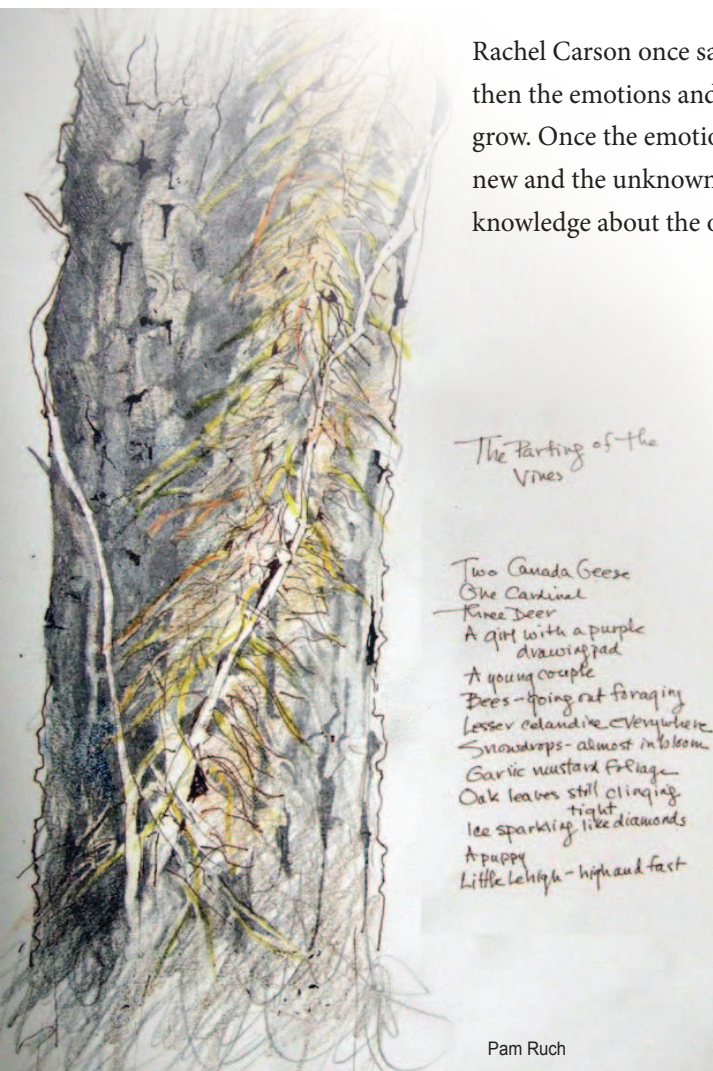 Rachel Carson once sa
then the emotions and
grow. Once the emotio
new and the unknown
knowledge about the o
The Parting of the
Vines
Two Canada Geese
One Cardinal
Three Deer
A girl with a purple
drawing pad
A young couple
Bees - going out foraging
Lesser celandine everywhere
Snowdrops - almost in bloom
Garlic mustard foliage
Oak leaves still clinging
tight
Ice sparkling like diamonds
A puppy
Little Lehigh - high and fast
Pam Ruch